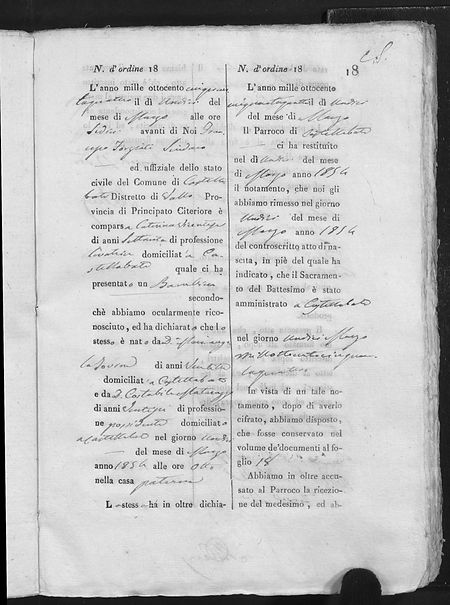 18
N. d'ordine 18
L'anno mille ottocento cinquan
taquattro il dì undici del
mese di Marzo alle ore
Sedici avanti di Noi
Sindaco
ed uffiziale dello stato
civile del Comune di Castella
bate Distretto di Vallo Pro-
vincia di Principato Citeriore è
comparsa Caterina
di anni Settanta di professione
domiciliata Ca
stellabate quale ci ha
presentato un Bambino
secondo-
chè abbiamo ocularmente rico-
nosciuto, ed ha dichiarato che lo
stesso è nato da D.
di anni
domiciliata Castellabate
e da D. Costabile
di anni di professio-
ne possidente domiciliato
a Castellabate nel giorno undici
del mese di Marzo
anno 1854 alle ore otto
nella casa paterna
Lo stesso ha in oltre dichia-
N. d'ordine 18
L'anno mille ottocento
cinquantaquattro il dì undici
del mese di Marzo
Il Parroco di Castellabate
ci ha restituito
nel dì undici del mese
di Marzo anno 1854
il notamento, che noi gli
abbiamo rimesso nel giorno
undici del mese di
Marzo anno 1854
del controscritto atto di na-
scita, in piè del quale ha
indicato, che il Sacramento
del Battesimo è stato
amministrato a Castellabate
nel giorno undici Marzo
mille ottocento cinquan
taquattro
In vista di un tale no-
tamento, dopo di averlo
cifrato, abbiamo disposto,
che fosse conservato nel
volume de'documenti al fo-
glio 18
Abbiamo in oltre accu-
sato al Parroco la ricezio-
ne del medesimo, ed ab-